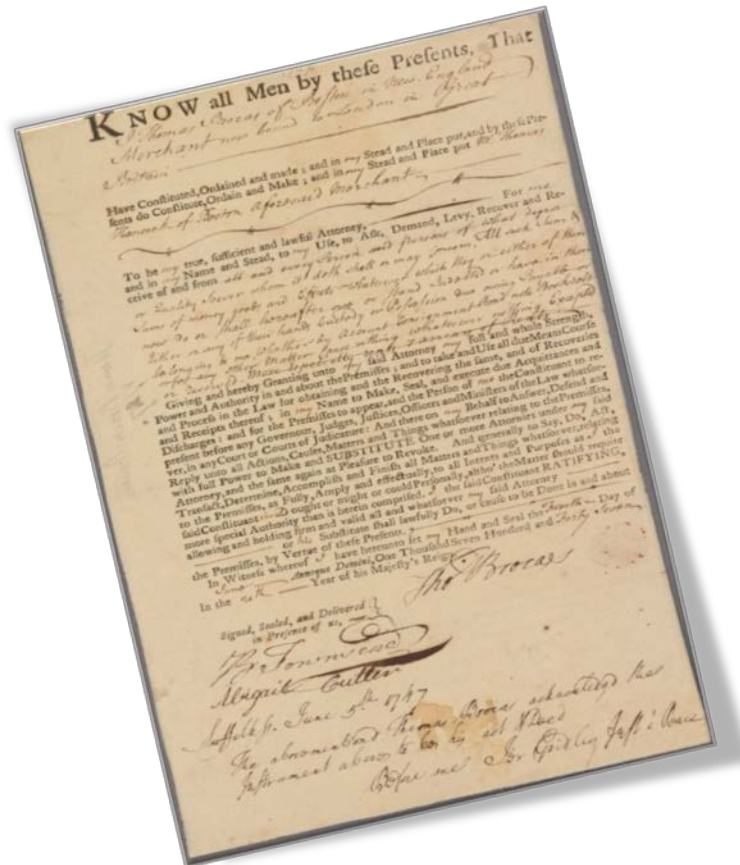 KNOW all Men by theſe Preſents, That
I Thomas Brocas of Boston in New England
Merchant now bound to London in Great
Britain
Have Conſtituted, Ordained and made; and in my Stead and Place put, and by theſe Pre-
ſents do Conſtitute, Ordain and Make; and in my Stead and Place put Mr. Thomas
Hancock of Boston aforesaid Merchant
To be my true, ſufficient and lawful Attorney, For me
and in my Name and Stead, to my Uſe, to Aſk, Demand, Levy, Recover and Re-
ceive of and from all and every Person and Persons of what degree
or Quality soever whom it doth shall or may concern All such Sum &
Sums of money goods and Effects whatsoever which they or either of them
now do or shall hereafter owe or Stand Indebted or have in them
Either or any of their hands Custody or Possession due owing Payable or
belonging to me whether by Account Consignment Bond note Book debt
or for any other Matter Cause or thing whatsoever nothing Excepted
or
Giving and hereby Granting unto my ſaid Attorney my full and whole Strength,
Power and Authority in and about the Premiſſes; and to take and Uſe all due Means Courſe
and Proceſs in the Law for obtaining and the Recovering the ſame, and of Recoveries
and Receipts thereof; in my Name to Make, Seal, and execute due Acquittances and
Diſcharges: and for the Premiſſes to appear, and the Perſon of me the Conſtituent to re-
preſent before any Governour, Judges, Juſtices, Officers and Miniſters of the Law whatſoe-
ver, in any Court or Courts of Judicature: And there on my Behalf to Anſwer, Defend and
Reply unto all Actions, Cauſes, Matters and Things whatſoever relating to the Premiſſes,
with full Power to Make and SUBSTITUTE One or more Attorneys under my ſaid
Attorney, and the ſame again at Pleaſure to Revoke. And generally to Say, Do, Act,
Tranſact, Determine, Accompliſh and Finiſh all Matters and Things whatſoever, relating
to the Premiſſes, as Fully, Amply and effectually, to all Intents and Purpoſes as I the
ſaid Conſtituent ought or might or could Perſonally, altho' the Matter ſhould require
more ſpecial Authority than is herein compriſed. I the ſaid Conſtituent RATIFYING,
allowing and holding firm and valid all and whatſoever my ſaid Attorney
or his Subſtitute ſhall lawfully Do, or cauſe to be Done in and about
the Premiſſes, by Vertue of theſe Preſents.
In Witneſs whereof I have hereunto ſet my Hand and Seal the Fourth Day of
June Annoque Domini, One Thouſand Seven Hundred and Forty Seven
In the Year of his Majeſty's Reign
Tho Brocas
Signed, Sealed, and Delivered
in Preſence of us,
Townsend
Abigail Cutler
Suffolk ss. June 5th 1747
The abovementioned Thomas Brocas acknowledged this
Instrument above to be his act & Deed
Before me Jer Gridley Just: Peace